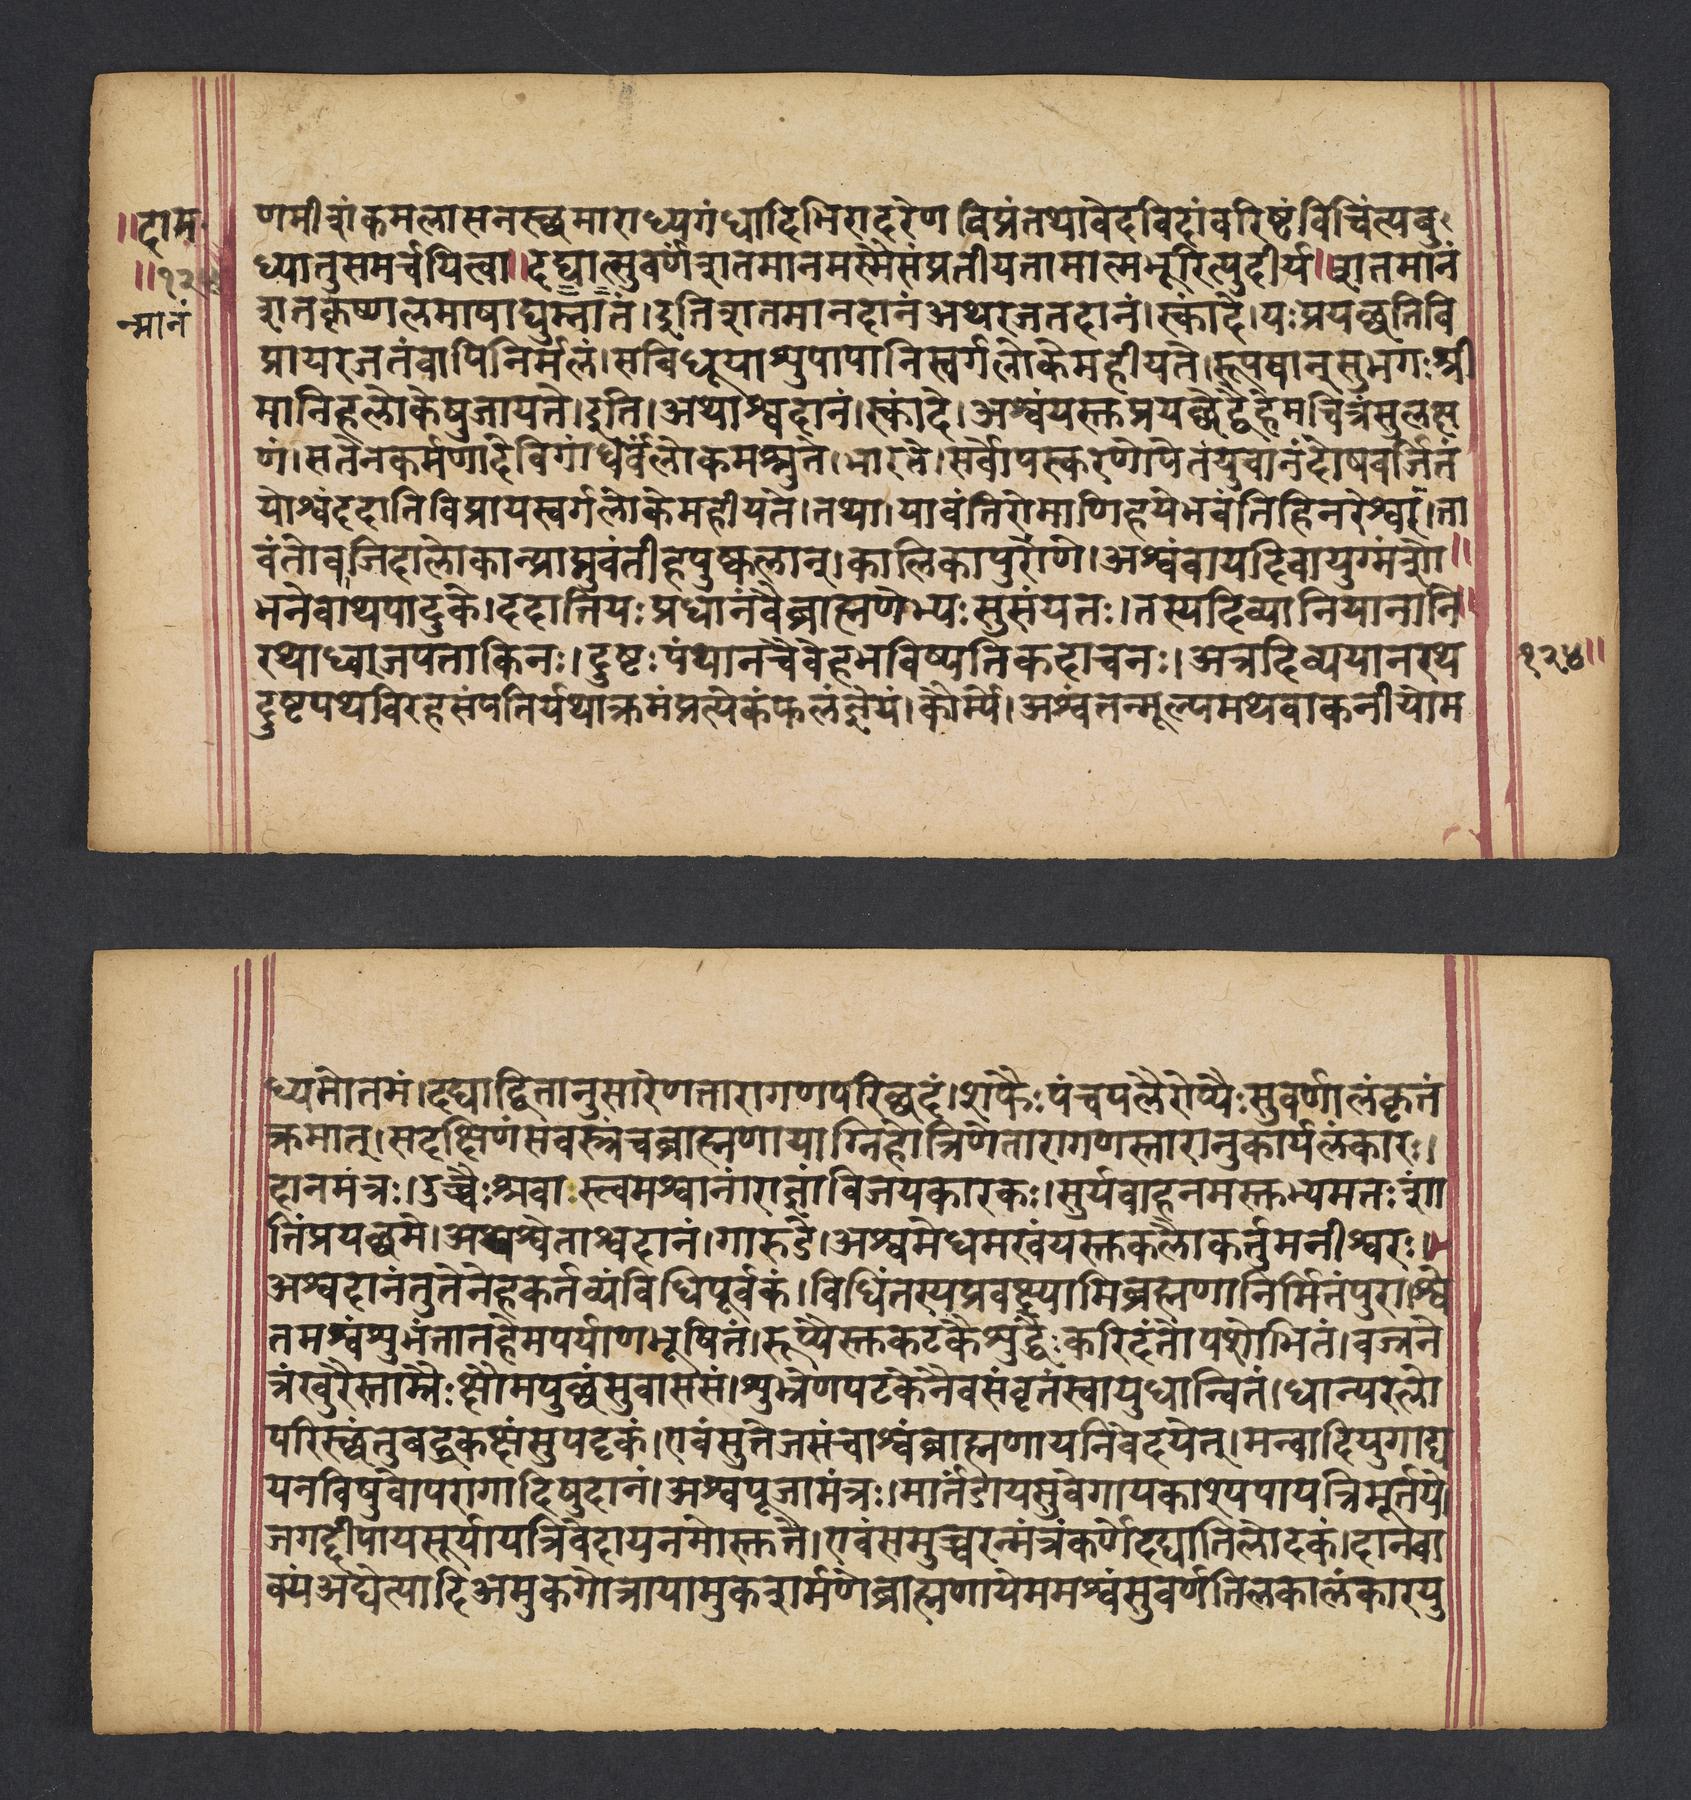 ॥दाम॰
॥१२४
न्मानं
णमीशंकमलासनस्छमाराध्यगंधादिभिरादरेण विप्रंतथावेदविदांवरिष्टंविचिंत्यबु
ध्यातुसमर्चयित्वा॥दद्यात्सुवर्णंशतमानमस्मैसंप्रतीयतामात्मभूरित्युदीर्य॥शतमानं
शतकृष्णलमाषाद्युम्नातं।इतिशतमानदानंअथरजतदानं।स्कांदे।यःप्रयछतिवि
प्रायरजतंवापिनिर्मलं।सविधूयाशुपापानिस्वर्गलोकेमहीयते।रूपषान्सुभगःश्री
मानिहलोकेषुजायते।इति।अथाश्वदानं।स्कांदे।अश्वंयस्तप्रयछेद्वैहेमचित्रंसुलक्ष
णं।सतेनकर्मणादेविगांधर्वंलोकमश्नुते।भारते।सर्वोपस्करणोपेतंयुवानंदोषवर्जितं
योश्वंददातिविप्रायस्वर्गलोकेमहीयते।तथा।यावंतिरोमाणिहयेभवंतिहिनरेश्वर।ता
वंतोवाजिदालोकान्प्राप्नुवंतीहपुष्कलान्।कालिकापुराणे।अश्वंवायदिवायुग्मंशो॥
भनेवाथपादुके।ददातियःप्रधानंवैब्राह्मणेभ्यःसुसंयतः।तस्यदिव्यानियानानि॥
रथाध्वाजपताकिनः।दुष्टःपंथानचैवेहभविष्यतिकदाचनः।अत्रदिव्ययानरथ
दुष्टपथविरहसंपतिर्यथाक्रमंप्रत्येकंफलंज्ञेयं।कौर्म्ये।अश्वंतन्मूल्यमथवाकनीयोम
१२४॥
ध्यमोतमं।दद्याद्वितानुसारेणतारागणपरिछदं।शफैःपंचपलैरोप्यैःसुवर्णालंकृतं
क्रमात्।सदक्षिणंसवस्त्रंचब्राह्मणायाग्निहोत्रिणेतारागणस्तारानुकार्यलंकारः।
दानमंत्रः।उच्चैःश्रवाःस्त्वमश्वानांराज्ञांविजयकारकः।सुर्यवाहनमस्तभ्यमतःशा
तिंप्रयछमे।अथश्वेताश्वदानं।गारुडे।अश्वमेधमखंयस्तकलौकर्तुमनीश्वरः।
अश्वदानंतुतेनेहकर्तव्यंविधिपूर्वकं।विधिंतस्यप्रवक्ष्यामिब्रह्मणानिर्मितंपुरा।श्वे
तमश्वंशुभंतातहेमपर्याणभूषितं।रूप्यैस्तकटकैशुद्धैःकरिदंतोपशोभितं।वज्रने
त्रंखुरैस्ताम्रैःक्षौमपुछंसुवाससं।शुभ्रेणपटकेनैवसंवृतंस्वायुधान्वितं।धान्यरत्नो
परिस्छंतुबद्धकक्षंसुपट्टकं।एवंसुतेजसंचाश्वंब्राह्मणायनिवेदयेत्।मन्वादियुगाद्य
यनविषुवोपरागादिषुदानं।अश्वपूजामंत्रः।मार्तंडायसुवेगायकाश्यपायत्रिमूर्तये
जगद्दीपायसूर्यायत्रिवेदायनमोस्तते।एवंसमुच्चरन्मंत्रंकर्णेदद्यातिलोदकं।दानवा
क्यंअद्येत्यादिअमुकगोत्रायामुकशर्मणेब्राह्मणायेममश्वंसुवर्णतिलकालंकारयु